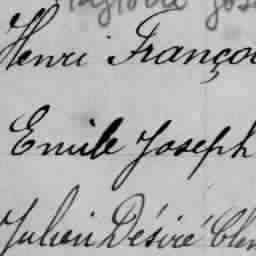 Henri Franço
Emile Joseph
Julien Désiré Clém